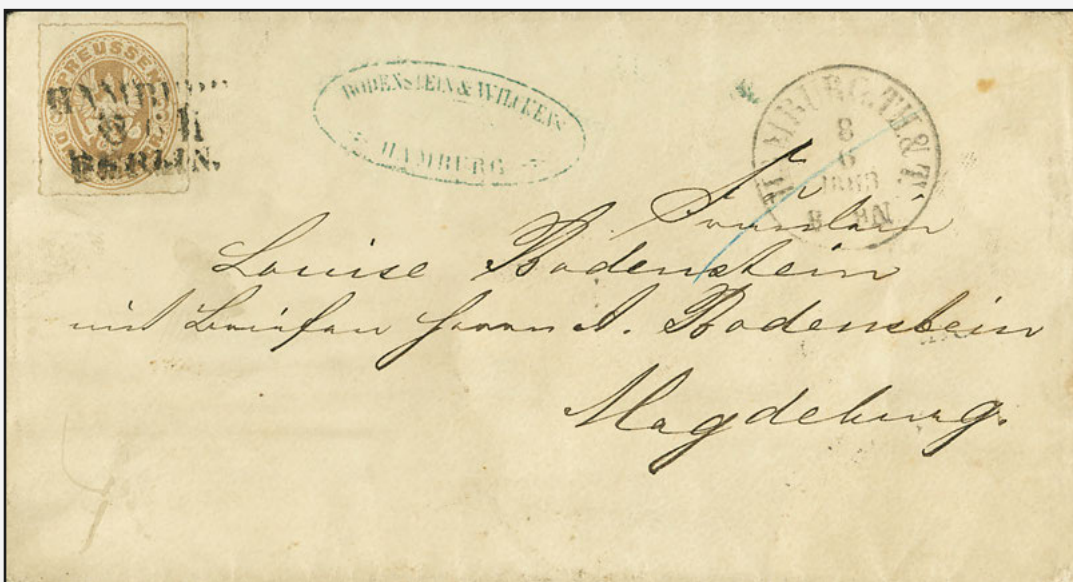 PREUSSEN
HAMBURG
8 6 II
BERLIN.
BODENSTEIN & WILCKENS
HAMBURG
HAMBURG.TH.&T.
8
6
1863
8 – 8N
Fräulein
Louise Bodenstein
Herrn A. Bodenstein
Magdeburg.